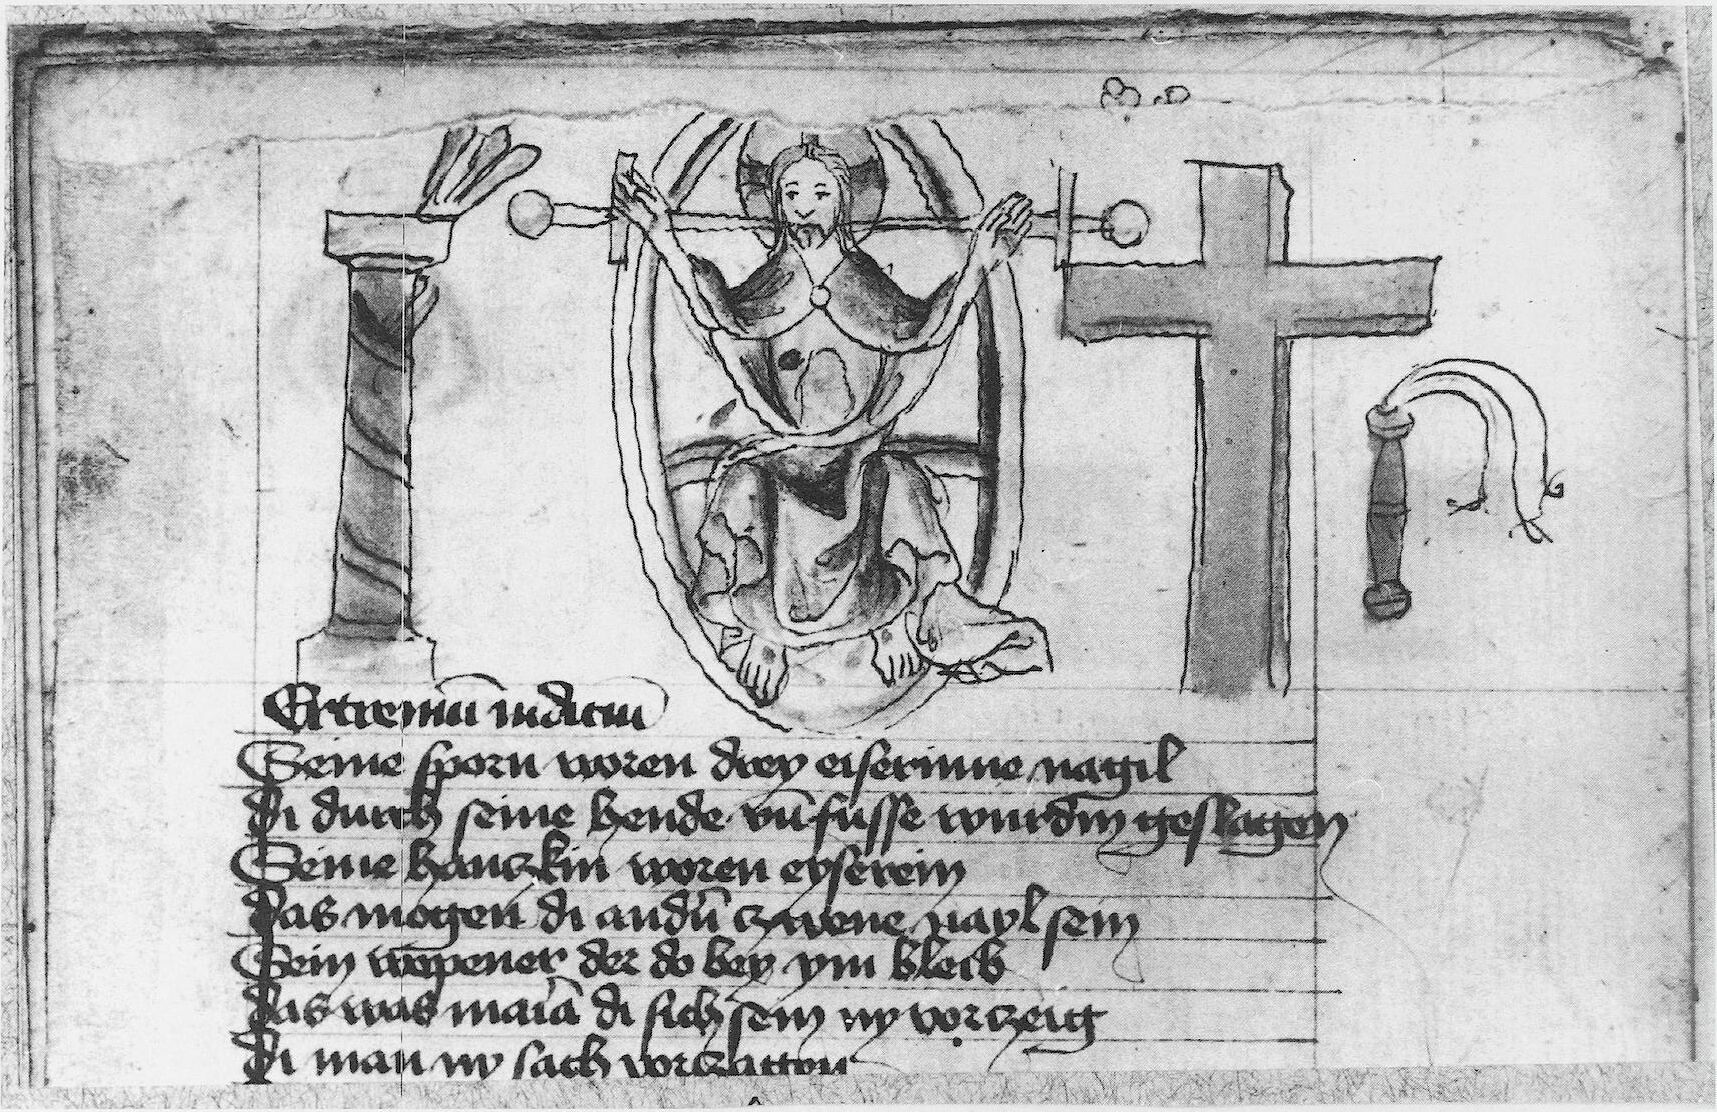 Extremū iudiciū
Seine sporn woren drey eiserinne nagil
di durch seine hende vn̄ fusse wurdin geslagen
Seine hanczkin woren eyserein
das mogen di andn̄ czwene nayl sein
Sein wepener der do bey ym bleib
das was maria di sich sein ny vorczeig
di man ny sach